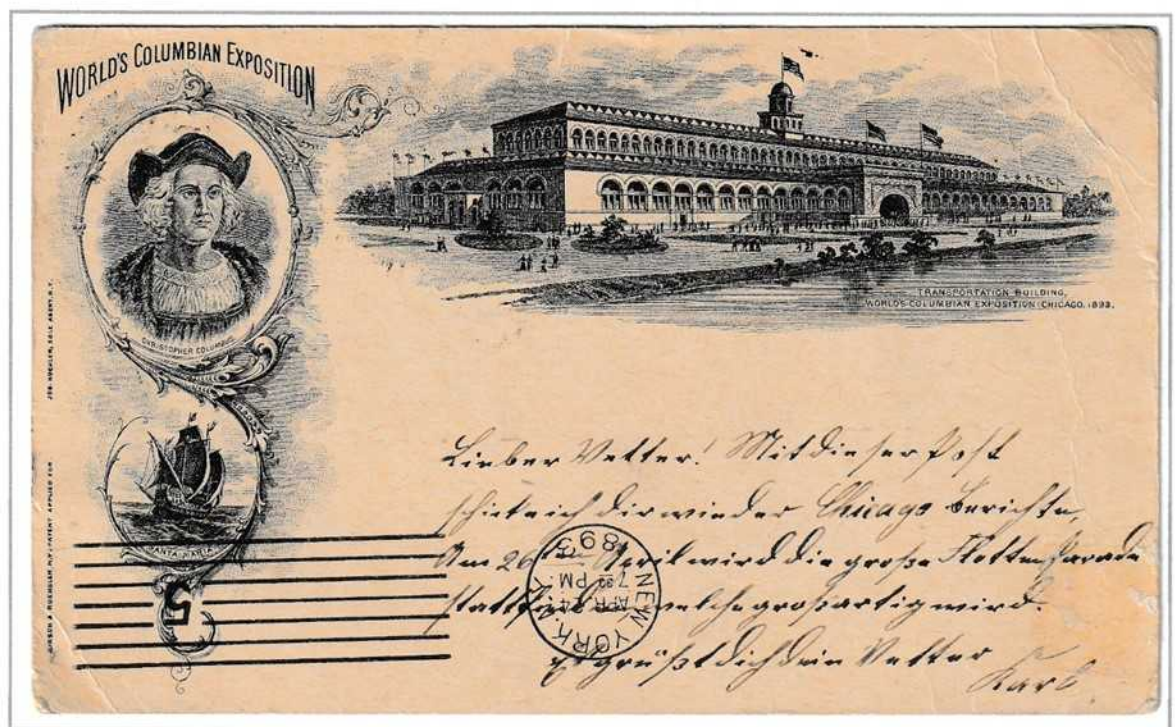 WORLD'S COLUMBIAN EXPOSITION
CHRISTOPHER COLUMBUS
SANTA MARIA
TRANSPORTATION BUILDING,
WORLD'S COLUMBIAN EXPOSITION, CHICAGO, 1893.
JOS. KOEHLER, SOLE AGENT, N.Y.
GIRSCH & ROEHSLER, N.Y., PATENT APPLIED FOR
Lieber Vetter! Mit dieser Post
schicke ich dir wieder Chicago Berichte,
Am 26ten April wird die große Flotten Parade
stattfinden welche großartig wird.
Es grüßt dich dein Vetter
Karl
NEW YORK, N.Y.
APR 24
7 30 PM
1893
5